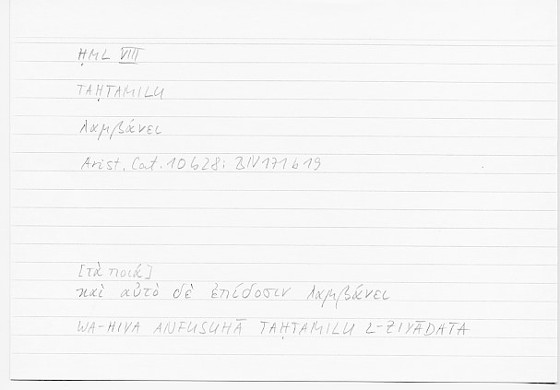 ḤML VIII
TAḤTAMILU
λαμβάνει
Arist. Cat. 10 b 28; BIV 171 b 19
[τὰ ποιά]
καὶ αὐτὸ δὲ ἐπίδοσιν λαμβάνει
WA-HIYA ANFUSUHĀ TAḤTAMILU L-ZIYĀDATA